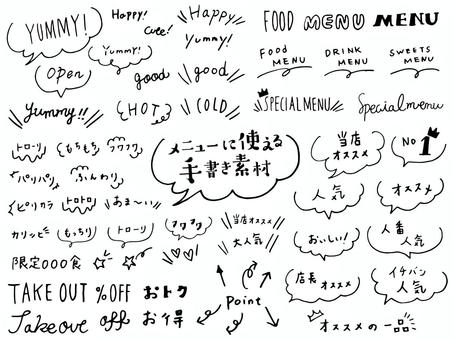 YUMMY!
Happy!
Cute!
Happy
Yummy!
FOOD MENU MENU
Yummy!
Open
good
good
Food
MENU
DRINK
MENU
SWEETS
MENU
Yummy!!
HOT
COLD
SPECIAL MENU
Special menu
トローリ
もちもち
フワフワ
パリパリ
ふんわり
ピリカラ
トロトロ
あま〜い
カリッピー
もっちり
トローリ
アツアツ
メニューに使える
手書き素材
当店
オススメ
No 1
人気
オススメ
当店オススメ
大人気
おいしい!
人番
人気
限定○○○食
店長オススメ
イチバン
人気
TAKE OUT %OFF おトク
Point
Takeove off お得
オススメの一品